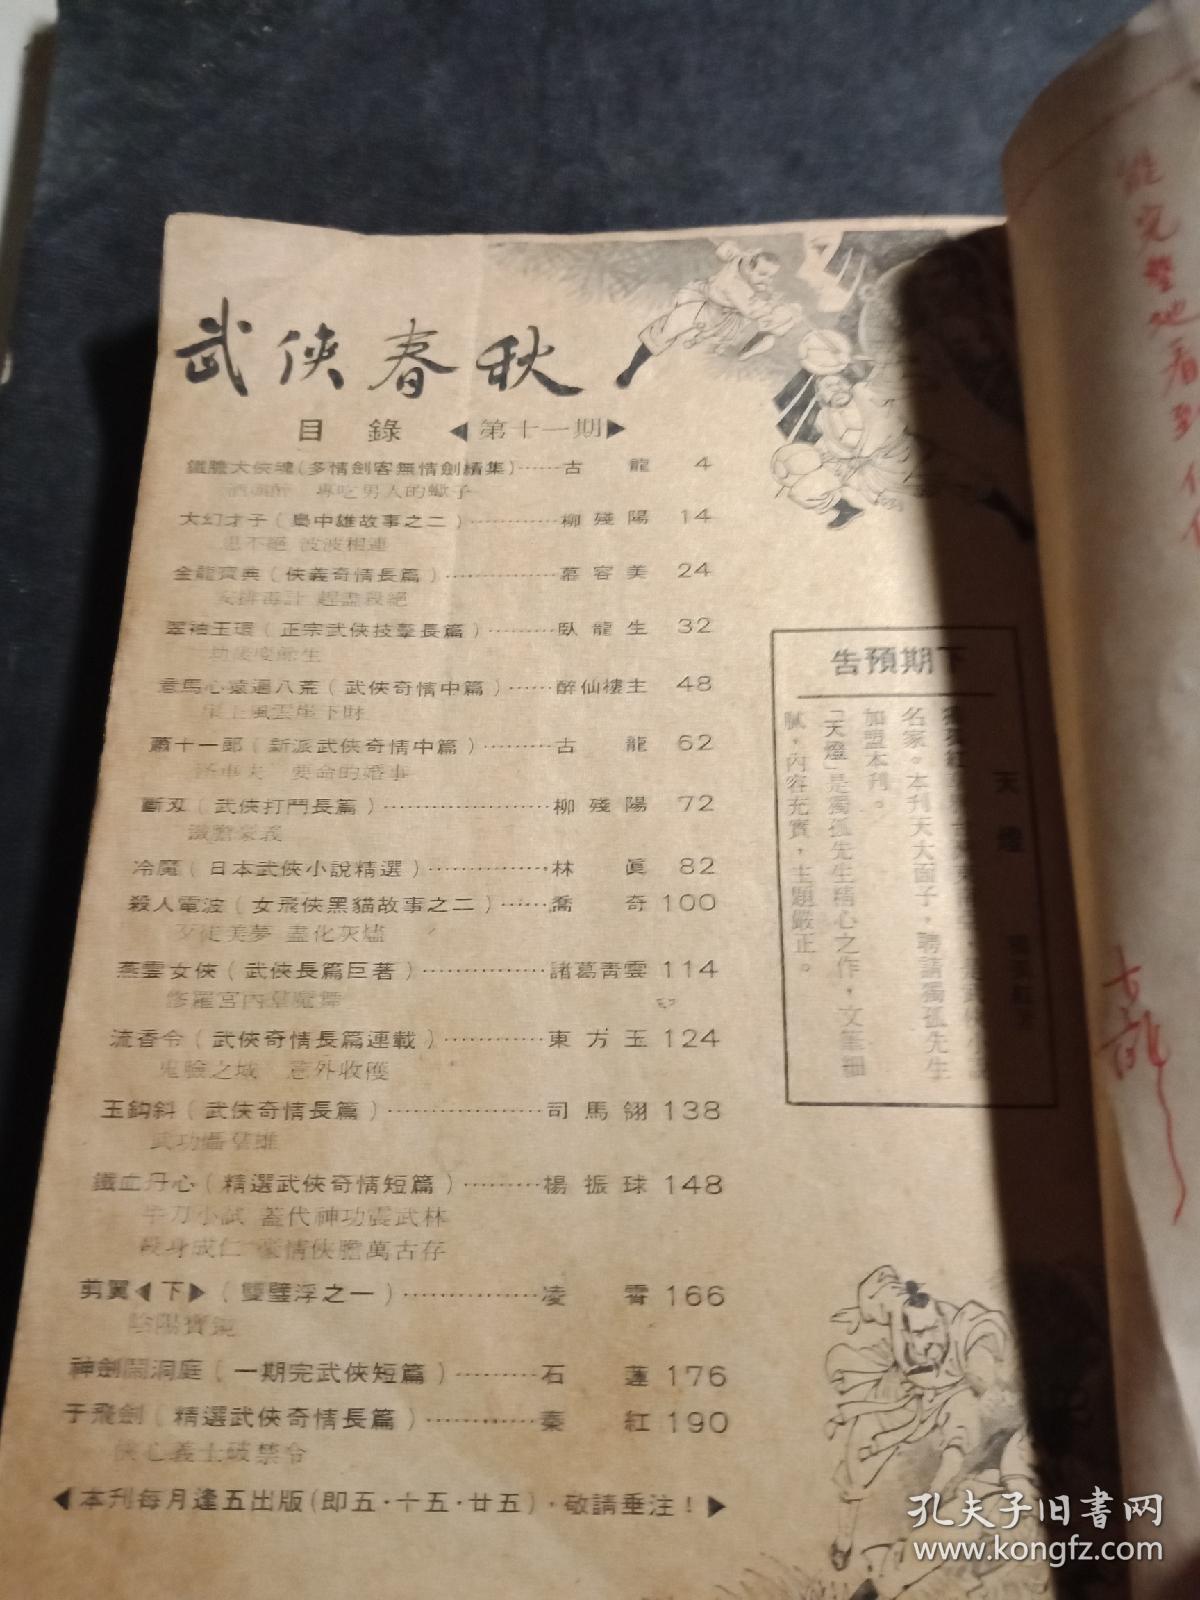 武俠春秋
目錄 ◀第十一期▶
鐵膽大俠魂(多情劍客無情劍續集)……古龍 4
專吃男人的蠍子
大幻才子(梟中雄故事之二)…………柳殘陽 14
波波相連
金龍寶典(俠義奇情長篇)……………慕容美 24
安排毒計 趕盡殺絕
翠袖玉環(正宗武俠技擊長篇)………臥龍生 32
劫後慶餘生
意馬心猿遍八荒(武俠奇情中篇)……醉仙樓主 48
崖上風雲崖下財
蕭十一郎(新派武俠奇情中篇)………古龍 62
要命的婚事
斷刃(武俠打鬥長篇)…………………柳殘陽 72
鐵膽豪義
冷魔(日本武俠小說精選)……………林真 82
殺人電波(女飛俠黑貓故事之二)……喬奇 100
歹徒美夢 盡化灰燼
燕雲女俠(武俠長篇巨著)……………諸葛青雲 114
修羅宮內羣魔舞
流香令(武俠奇情長篇連載)…………東方玉 124
鬼臉之城 意外收穫
玉鈎斜(武俠奇情長篇)………………司馬翎 138
武功懾羣雄
鐵血丹心(精選武俠奇情短篇)………楊振球 148
牛刀小試 蓋代神功震武林
殺身成仁 豪情俠膽萬古存
剪翼◀下▶(雙璧浮之一)……………凌霄 166
陰陽寶鏡
神劍鬧洞庭(一期完武俠短篇)………石蓮 176
于飛劍(精選武俠奇情長篇)…………秦紅 190
俠心義士破禁令
◀本刊每月逢五出版(即五·十五·廿五)·敬請垂注!▶
下期預告
天燈
名家。本刊天大面子，聘請獨孤先生
加盟本刊。
「天燈」是獨孤先生精心之作，文筆細
膩，內容充實，主題嚴正。
能完整地看到
古龍
孔夫子旧书网
www.kongfz.com